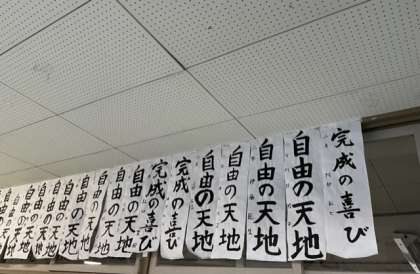 完成の喜び
自由の天地
自由の天地
自由の天地
自由の天地
完成の喜び
完成の喜び
自由の天地
自由の天地
自由の天地
自由の天地
自由の天地
自由の天地
自由の天地
自由の天地